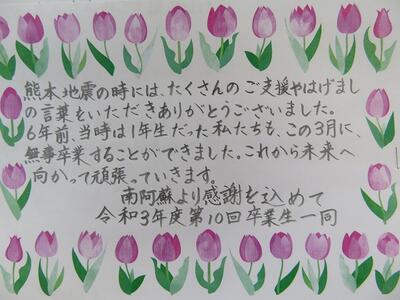 熊本地震の時には、たくさんのご支援やはげまし
の言葉をいただきありがとうございました。
6年前、当時は1年生だった私たちも、この3月に、
無事卒業することができました。これから未来へ
向かって頑張っていきます。
南阿蘇より感謝を込めて
令和3年度第10回卒業生一同